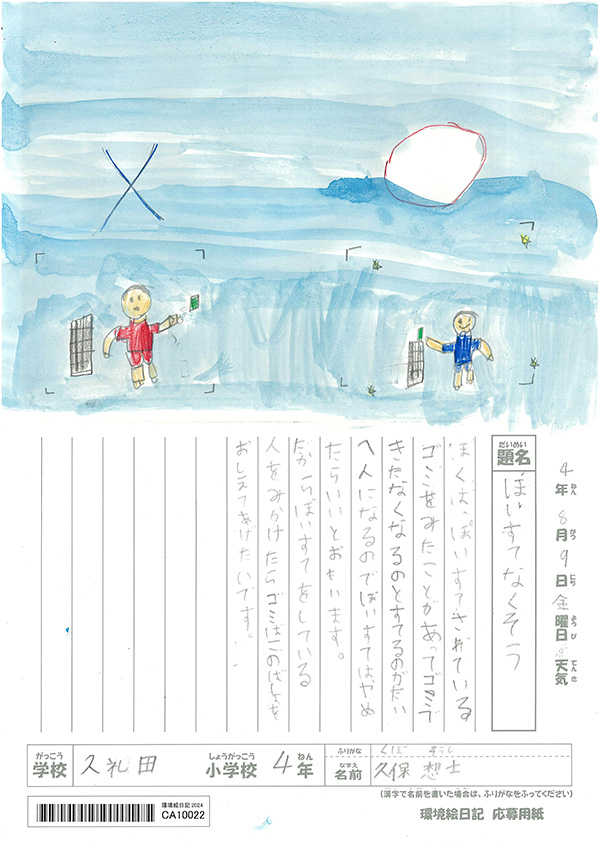 4年 8月 9日 金曜日 天気
ねん がつ にち ようび てんき
だいめい
題名
ぽいすてなくそう
ぼくは、ぽいすてされている
ゴミをみたことがあってゴミで
きたなくなるのとすてるのがたい
へんになるのでぽいすてはやめ
たらいいとおもいます。
だからぽいすてをしている
人をみかけたらゴミはこのばしょを
おしえてあげたいです。
がっこう
学校
久礼田
しょうがっこう
小学校
4年
ねん
ふりがな
くぼ そうし
なまえ
名前
久保 想士
(漢字で名前を書いた場合は、ふりがなをふってください)
環境絵日記2024
CA10022
環境絵日記 応募用紙